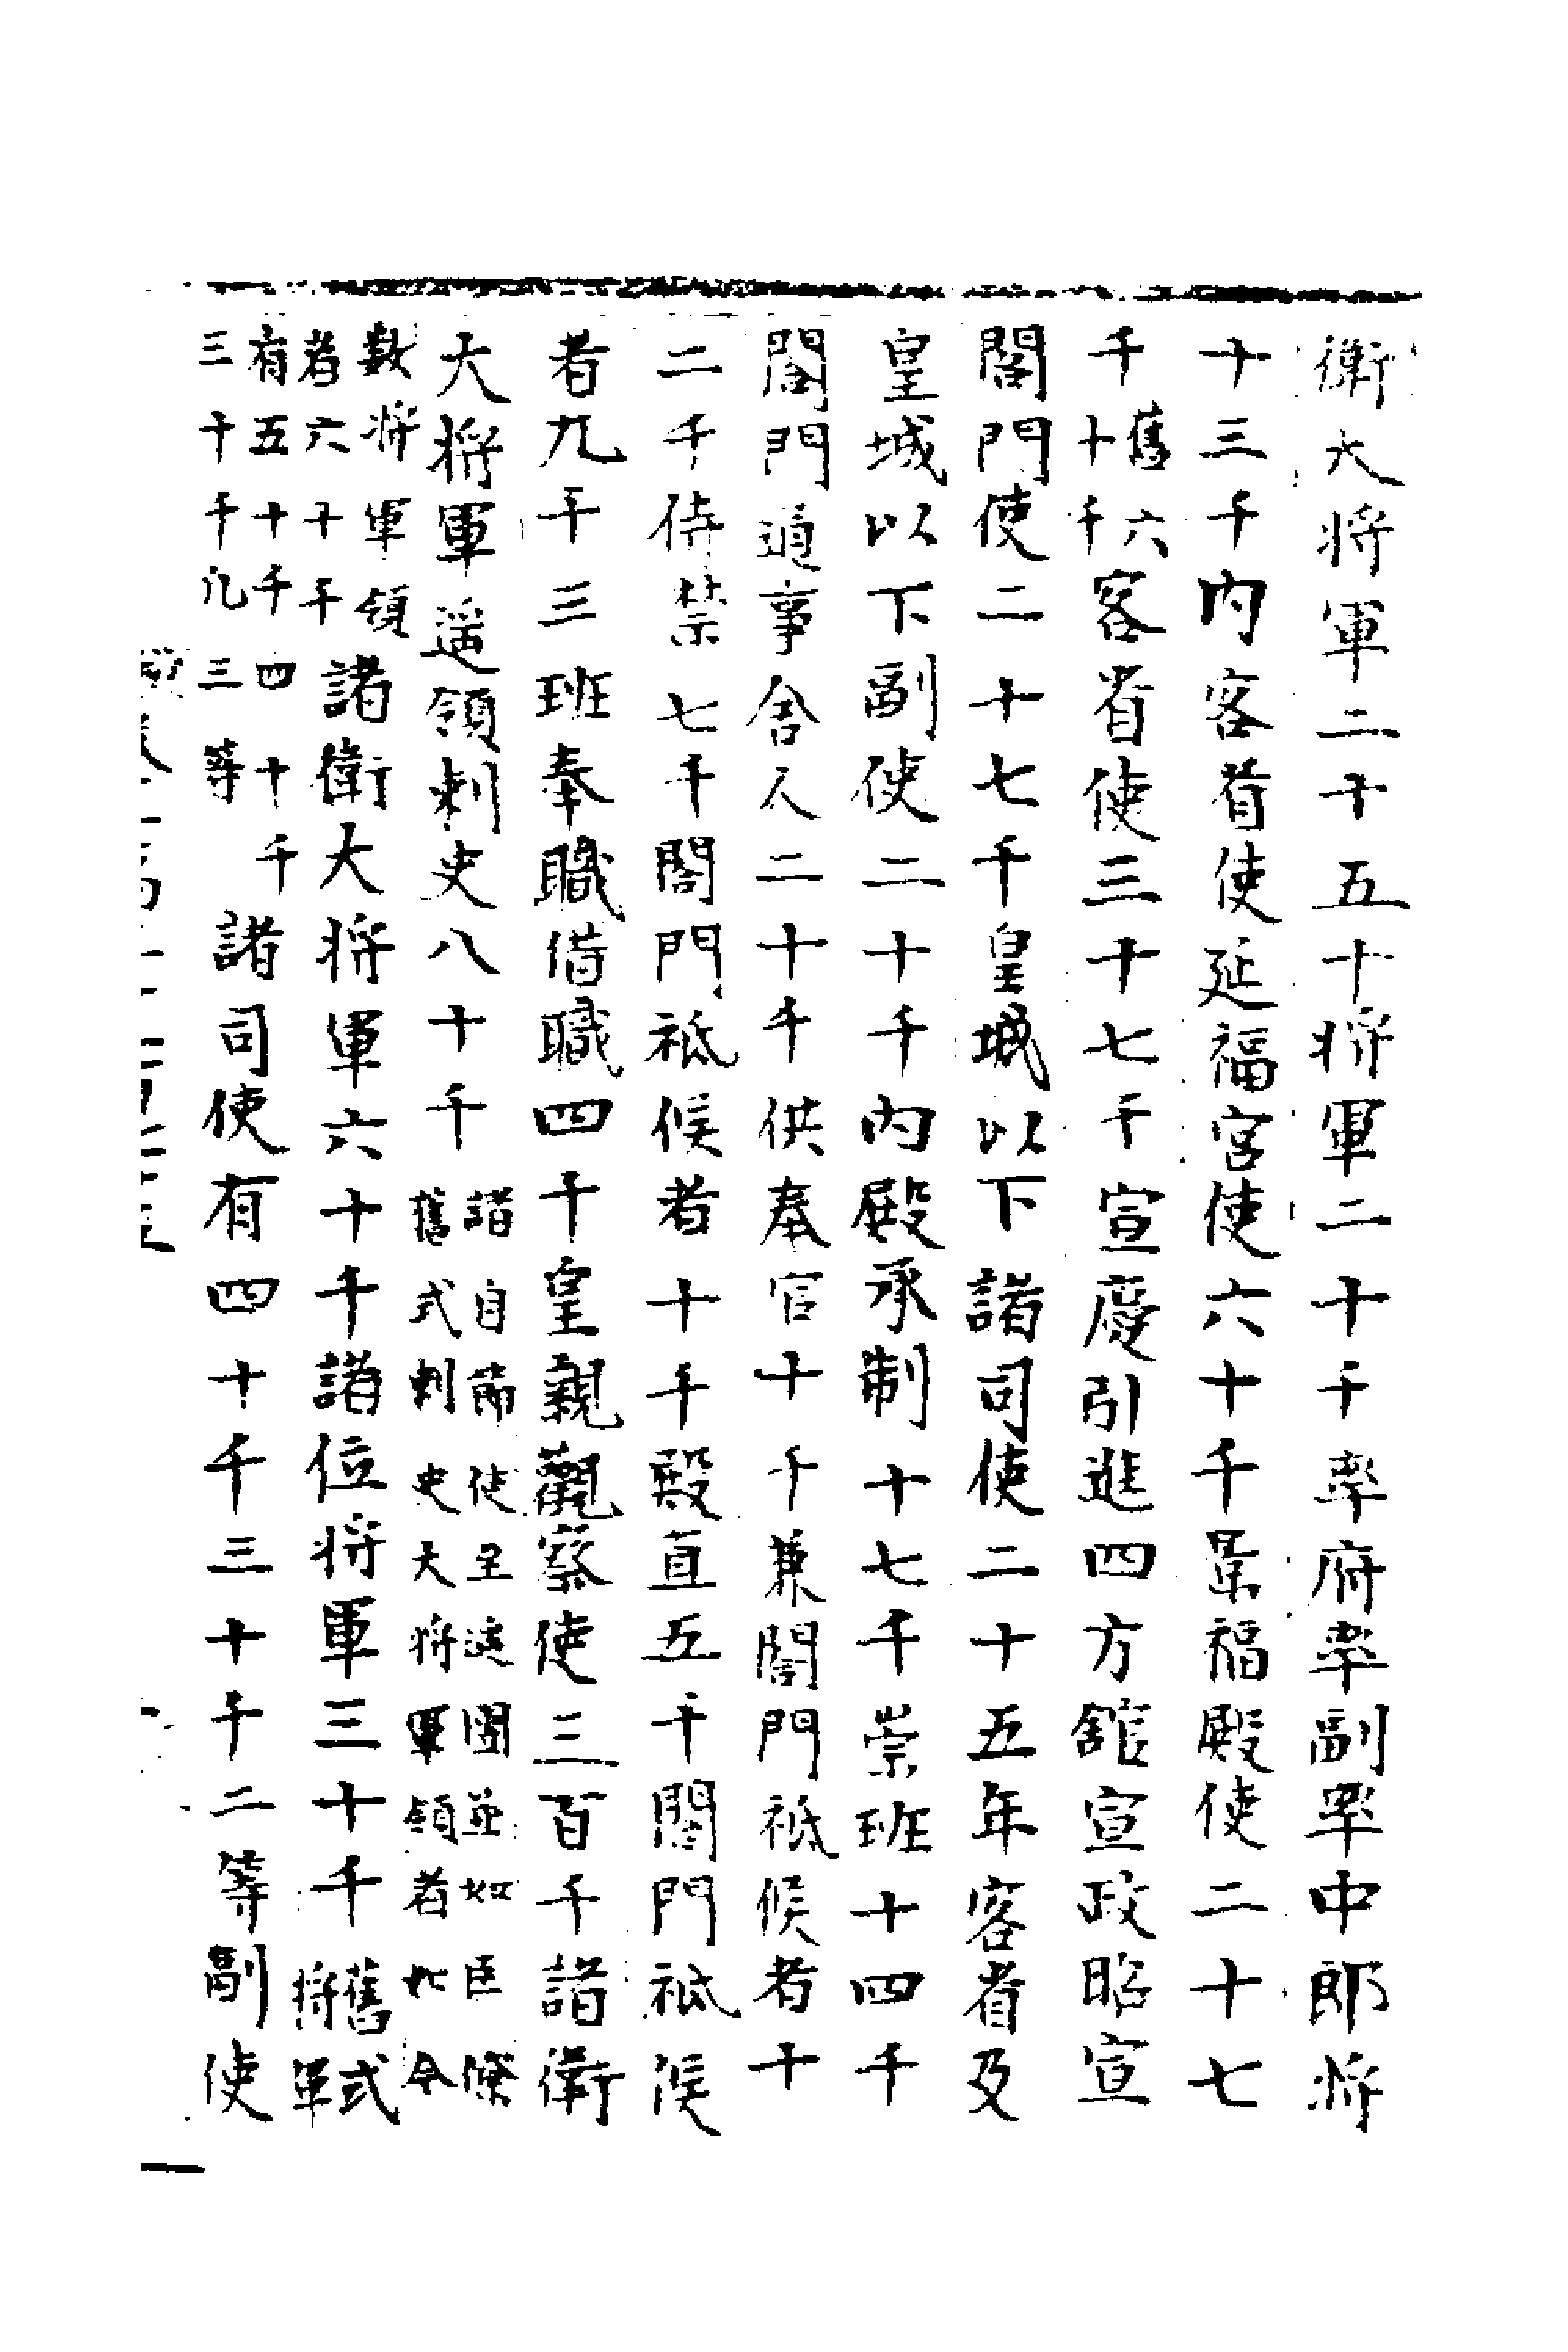 衛大將軍二十五十將軍二十千率府率副率中郎將
十三千內客省使延福宮使六十千景福殿使二十七
千舊六十千客省使三十七千宣慶引進四方館宣政昭宣
閤門使二十七千皇城以下諸司使二十五年客省及
皇城以下副使二十千內殿承制十七千崇班十四千
閤門通事舍人二十千供奉官十千兼閤門祗候者十
二千侍禁七千閤門祗候者十千殿直五千閤門祗候
者九千三班奉職借職四千皇親觀察使三百千諸衛
大將軍遥領刺史八十千諸自節使至遥團並如臣僚舊式刺史大將軍領者如今
數將軍領者六十千諸衛大將軍六十千諸位將軍三十千舊式將軍
有五十千四十千三十千凡三等諸司使有四十千三十千二等副使